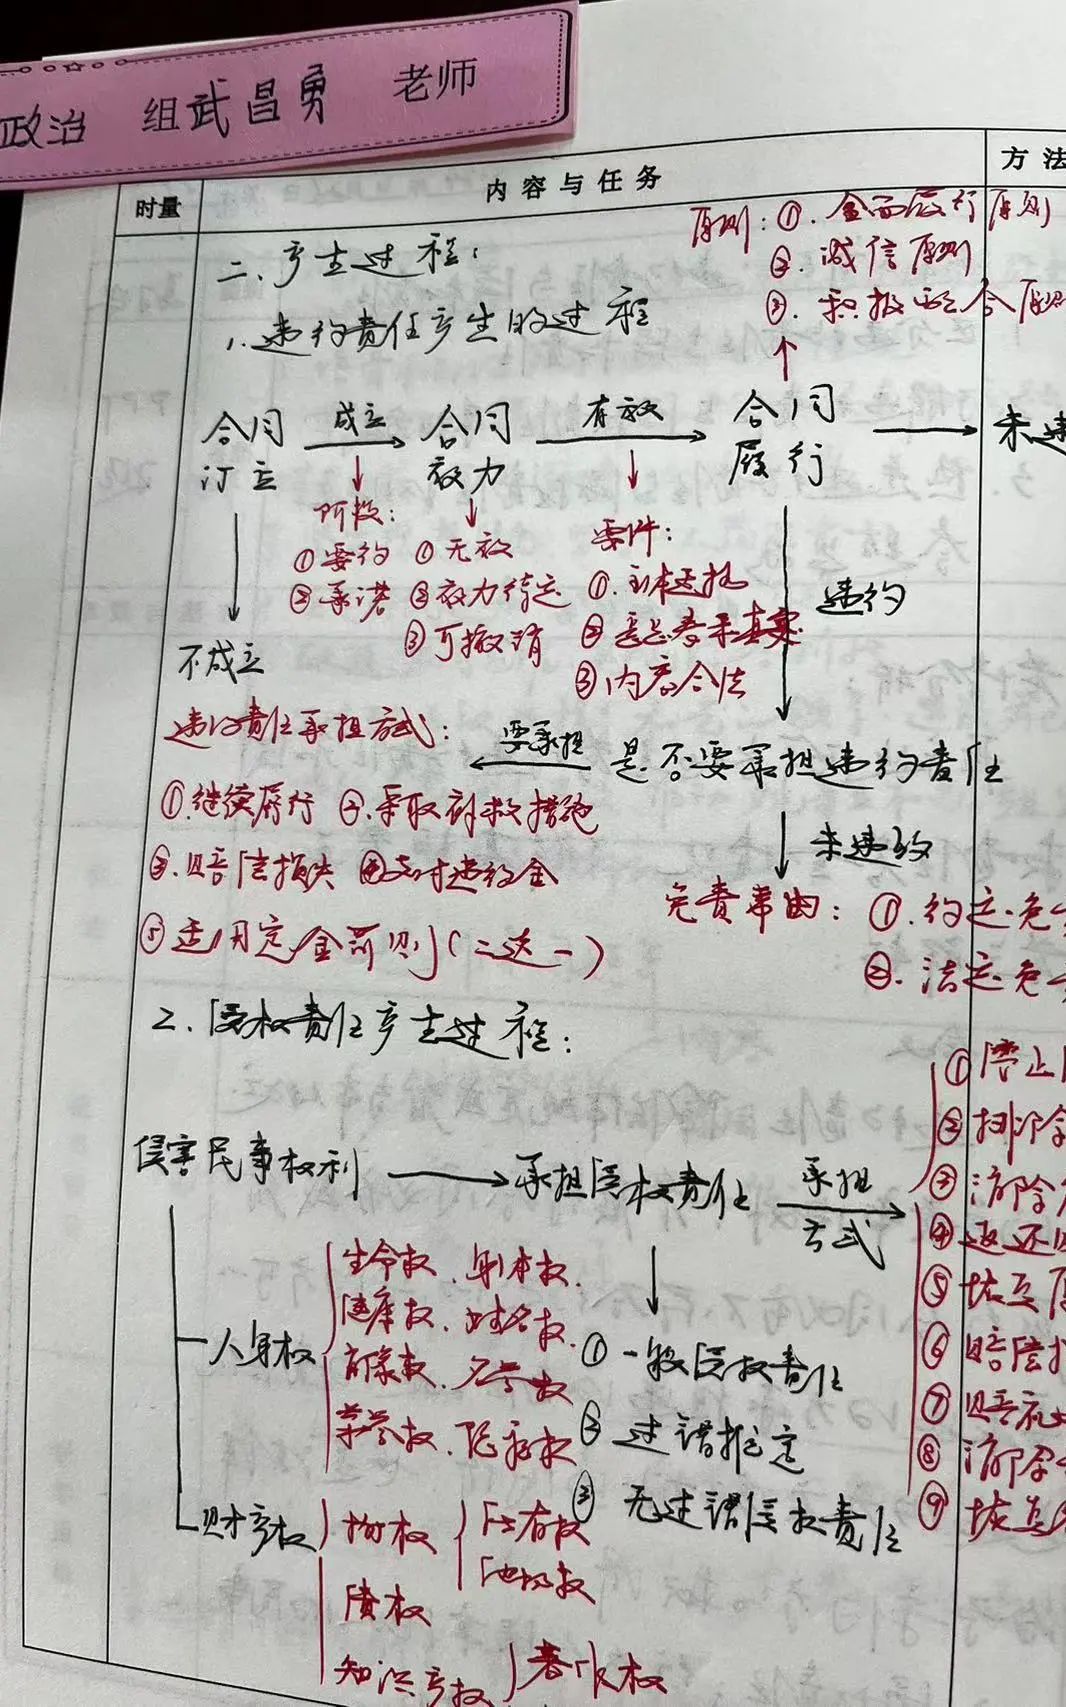 政治 组武昌勇 老师
时量 内容与任务 方法
原则：①.全面履行原则
②.诚信原则
③.积极配合原则
二、产生过程：
1.违约责任产生的过程
合同订立 成立 合同效力 有效 合同履行 未违
阶段：
①要约
②承诺
①无效
②效力待定
③可撤销
要件：
①.主体适格
②意思表示真实
③内容合法
违约
不成立
违约责任承担方式： 要承担 是否要承担违约责任
①.继续履行 ②.采取补救措施
③.赔偿损失 ④支付违约金
⑤适用定金罚则（二选一）
未违约
免责事由：①.约定免
②.法定免
2.侵权责任产生过程：
侵害民事权利 承担侵权责任 承担方式
①停止
②排除
③消除
④返还
⑤恢复
⑥赔偿损
⑦赔礼
⑧消除
⑨恢复
人身权
生命权、身体权、
健康权、姓名权、
肖像权、名誉权
荣誉权、隐私权
①一般侵权责任
②过错推定
③无过错侵权责任
财产权
物权 所有权
债权
知识产权 著作权